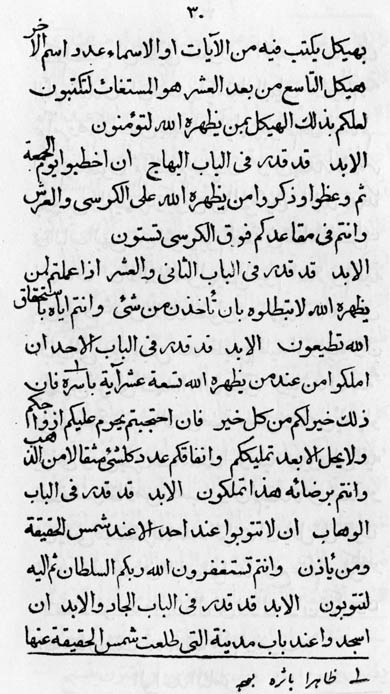 ٣٠
بهيكل يكتب فيه من الآيات او الاسماء عدد اسم الآخر
هيكل التاسع من بعد العشر هو المستغاث لتكتبون
لعلكم بذلك الهيكل بمن يظهره الله لتؤمنون
الابد قد قدر فى الباب البهاج ان اخطبوا يوم الجمعة
ثم وعظوا وذكروا من يظهره الله على الكرسى والعرش
وانتم فى مقاعدكم فوق الكرسى تستون
الابد قد قدر فى الباب الثانى والعشر اذا عملتم لمن
يظهره الله لا تبطلوه بان تأخذن من شئ وانتم اياه باستحقاق
الله تطيعون الابد قد قدر فى الباب الاحد ان
املكوا من عند من يظهره الله تسعة عشر آية باسره فان
ذلك خير لكم من كل خير فان احتجبتم يحرم عليكم ازواجكم
ولا يحل الا بعد تمليككم وانفاقكم عدد كلشئ مثقالا من الذهب
وانتم برضائه هذا تملكون الابد قد قدر فى الباب
الوهاب ان لا تتوبوا عند احد الا عند شمس الحقيقة
ومن يأذن وانتم تستغفرون الله ربكم السلطان ثم اليه
لتتوبون الابد قد قدر فى الباب الجاد والابد ان
اسجدوا عند باب مدينة التى طلعت شمس الحقيقة عنها
١ ظاهرا باثره